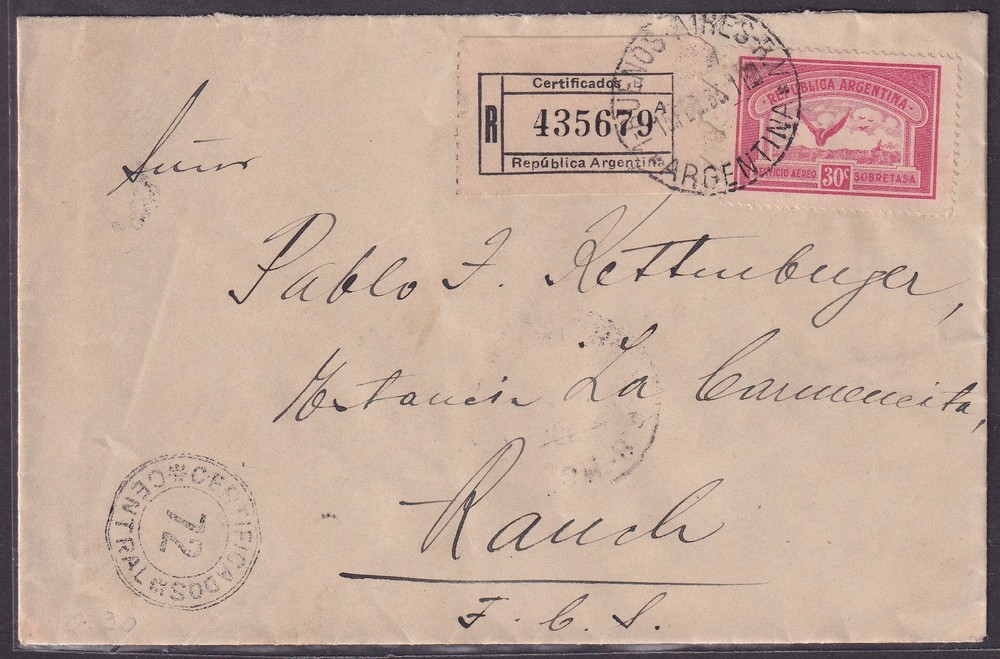 Certificados
R 435679 A
República Argentina
BUENOS AIRES
ARGENTINA
REPUBLICA ARGENTINA
SERVICIO AEREO 30c SOBRETASA
Señor
Pablo F. Kettenburger,
Estancia La Carmencita,
Rauch
F. C. S.
CERTIFICADOS CENTRAL
72
0.30